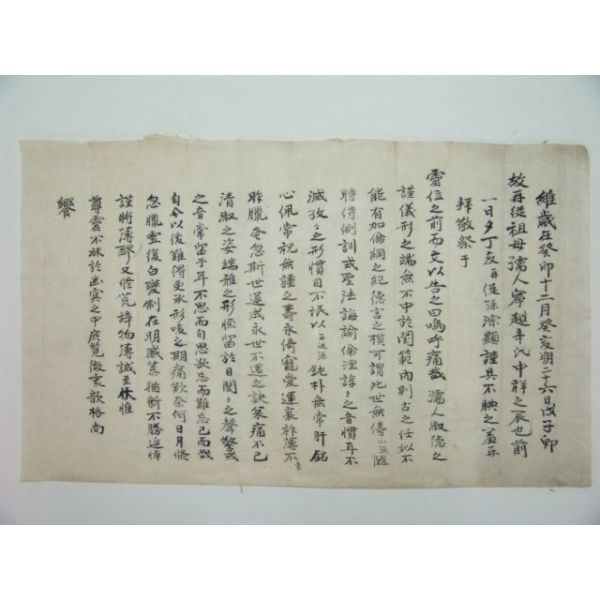 維歲在癸卯十二月癸亥朔二十六日戊子卯
故再從祖母孺人寧越辛氏中祥之辰也前
一日夕丁亥再從孫 謹具不腆之羞再
拜敬祭于
靈位之前而文以告之曰嗚呼痛哉 孺人淑德之
謹儀形之端無不中於閨範內則古之任姒不
能有加倫綱之紀德言之模可謂此世無儔小子隨
時侍側訓或聖法誨諭倫理諄諄之音慣耳不
滅 之形慣目不泯以 鈍朴無常肝銘
心佩常祝無疆之壽永倚寵愛運衰祚薄不
昨臘奄忽斯世還成永世不還之訣哀痛不已
清淑之姿端雅之形恒留於目 之聲警戒
之音常留于耳不思而自思欲忘而難忘已而哉
自今以後難得更承 之期痛歎奈何日月
忽臘 復白變制在明感慕 新不勝追悼
謹將薄醪又 荒 物薄誠 惟
尊靈不昧於冥冥之中庶 衷歆格尚
饗